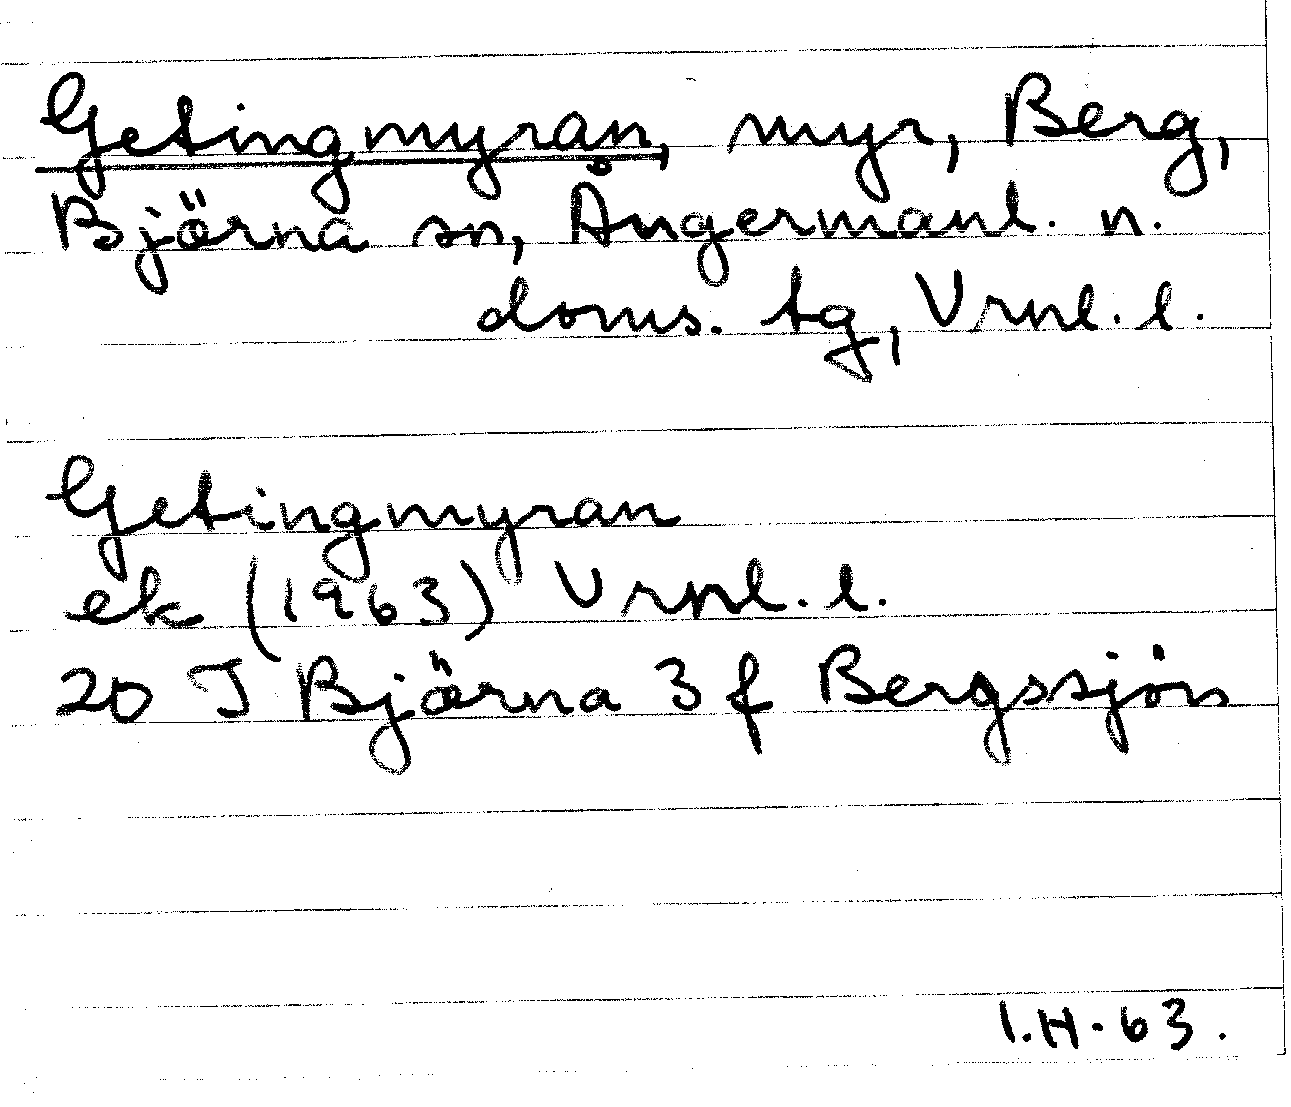 Getingmyran, myr, Berg,
Björna sn, Ångermanl. n.
doms. tg, Vrnl. l.
Getingmyran
ek (1963) Vrnl. l.
20 J Björna 3 f Bergssjön
I.H. 63.